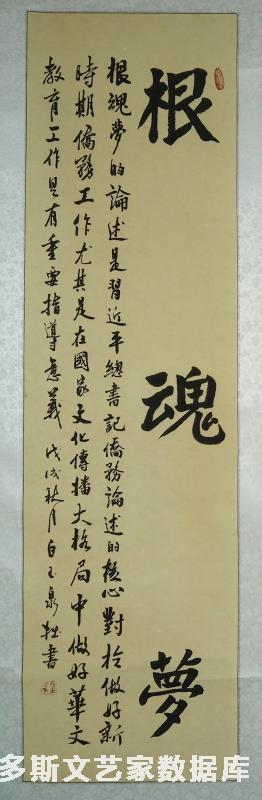 根魂夢
根魂夢的論述是習近平總書記僑務論述的核心對於做好新
時期僑務工作尤其是在國家文化傳播大格局中做好華文
教育工作具有重要指導意義 戊戌秋月白玉泉拙書
多斯文艺家数据库